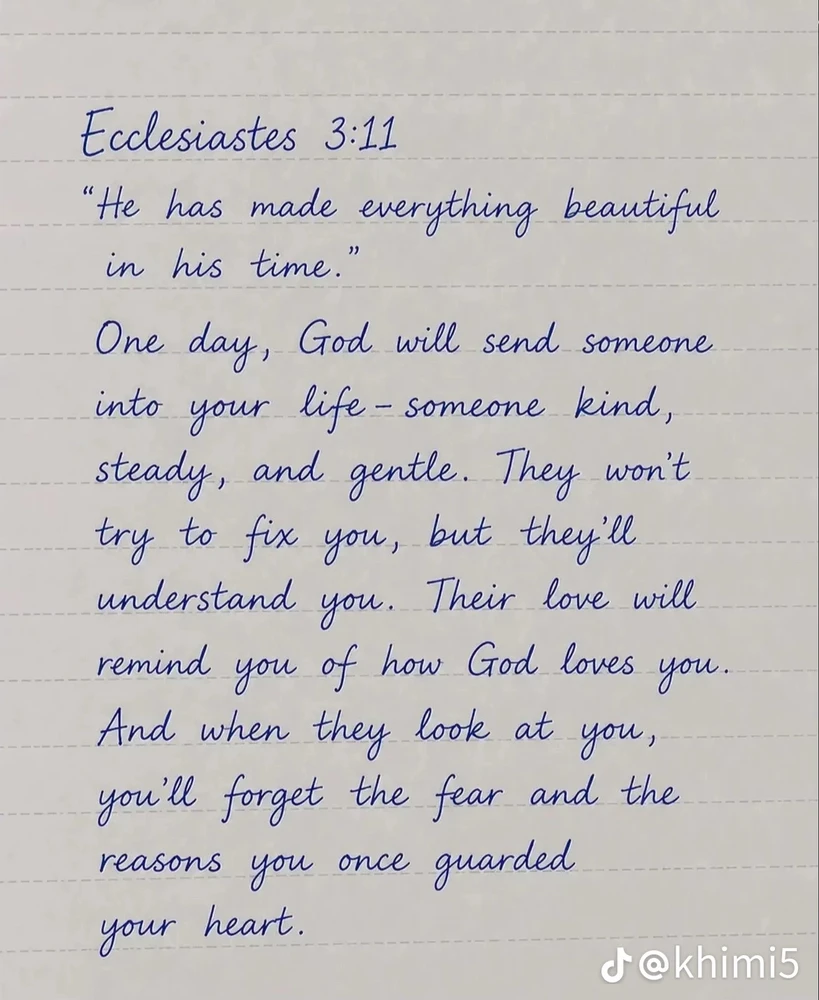 Ecclesiastes 3:11
“He has made everything beautiful
in his time.”
One day, God will send someone
into your life – someone kind,
steady, and gentle. They won't
try to fix you, but they'll
understand you. Their love will
remind you of how God loves you.
And when they look at you,
you'll forget the fear and the
reasons you once guarded
your heart.
@khimi5